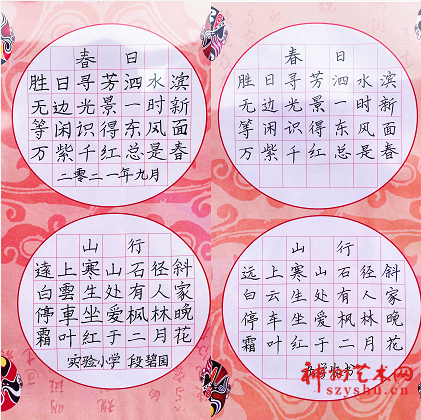 春日
胜日寻芳泗水滨
无边光景一时新
等闲识得东风面
万紫千红总是春
二零二一年九月
山行
遠上寒山石径斜
白雲生处有人家
停車坐爱枫林晚
霜叶红于二月花
实验小学 段碧国
春日
胜日寻芳泗水滨
无边光景一时新
等闲识得东风面
万紫千红总是春
山行
远上寒山石径斜
白云生处有人家
停车坐爱枫林晚
霜叶红于二月花
神州艺术网
szyshu.cn